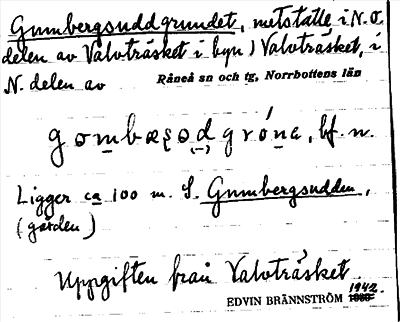 Gumbergsuddgrundet, notställe i N.O.
delen av Valvträsket i byn Valvträsket, i
N. delen av Råneå sn och tg, Norrbottens län
bf. n.
Ligger ca 100 m. S. Gumbergsudden,
(gården)
Uppgiften från Valvträsket.
EDVIN BRÄNNSTRÖM 1942.